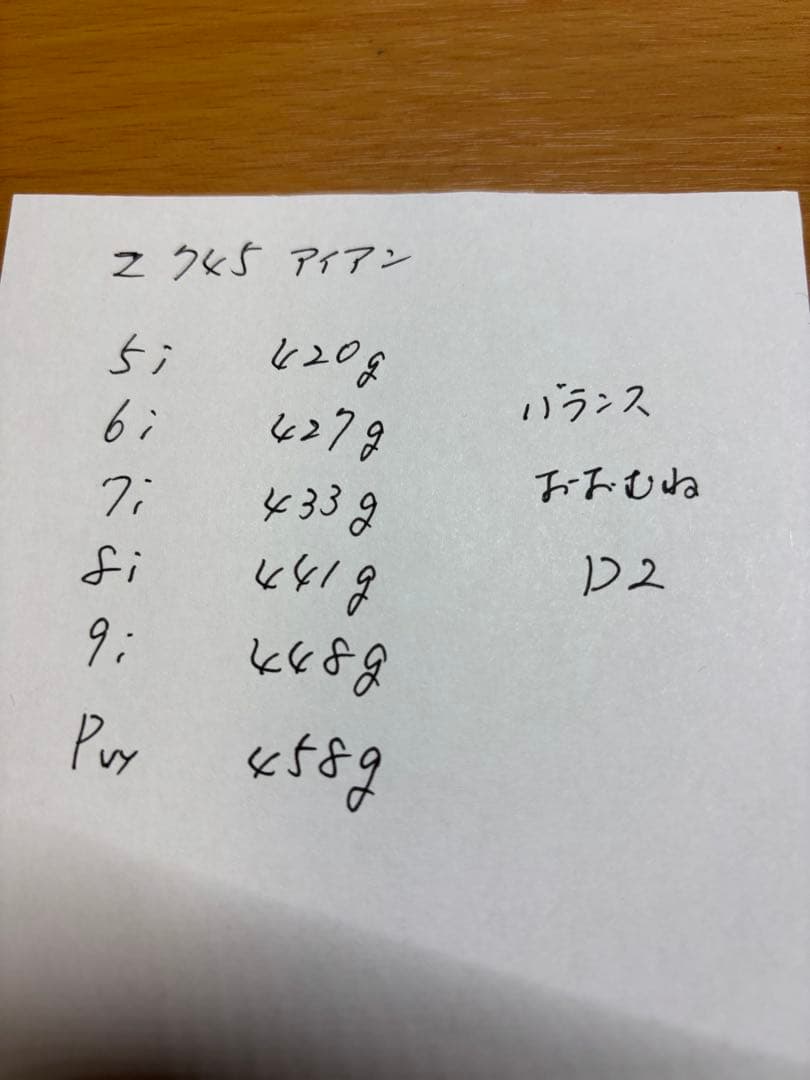 Z 745 アイアン
5i 420g
6i 427g
7i 433g
8i 441g
9i 448g
Pw 458g
バランス
おおむね
D2